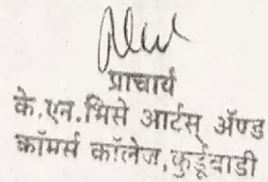 प्राचार्य
के.एन.भिसे आर्टस् ॲण्ड
कॉमर्स कॉलेज,कुर्डूवाडी